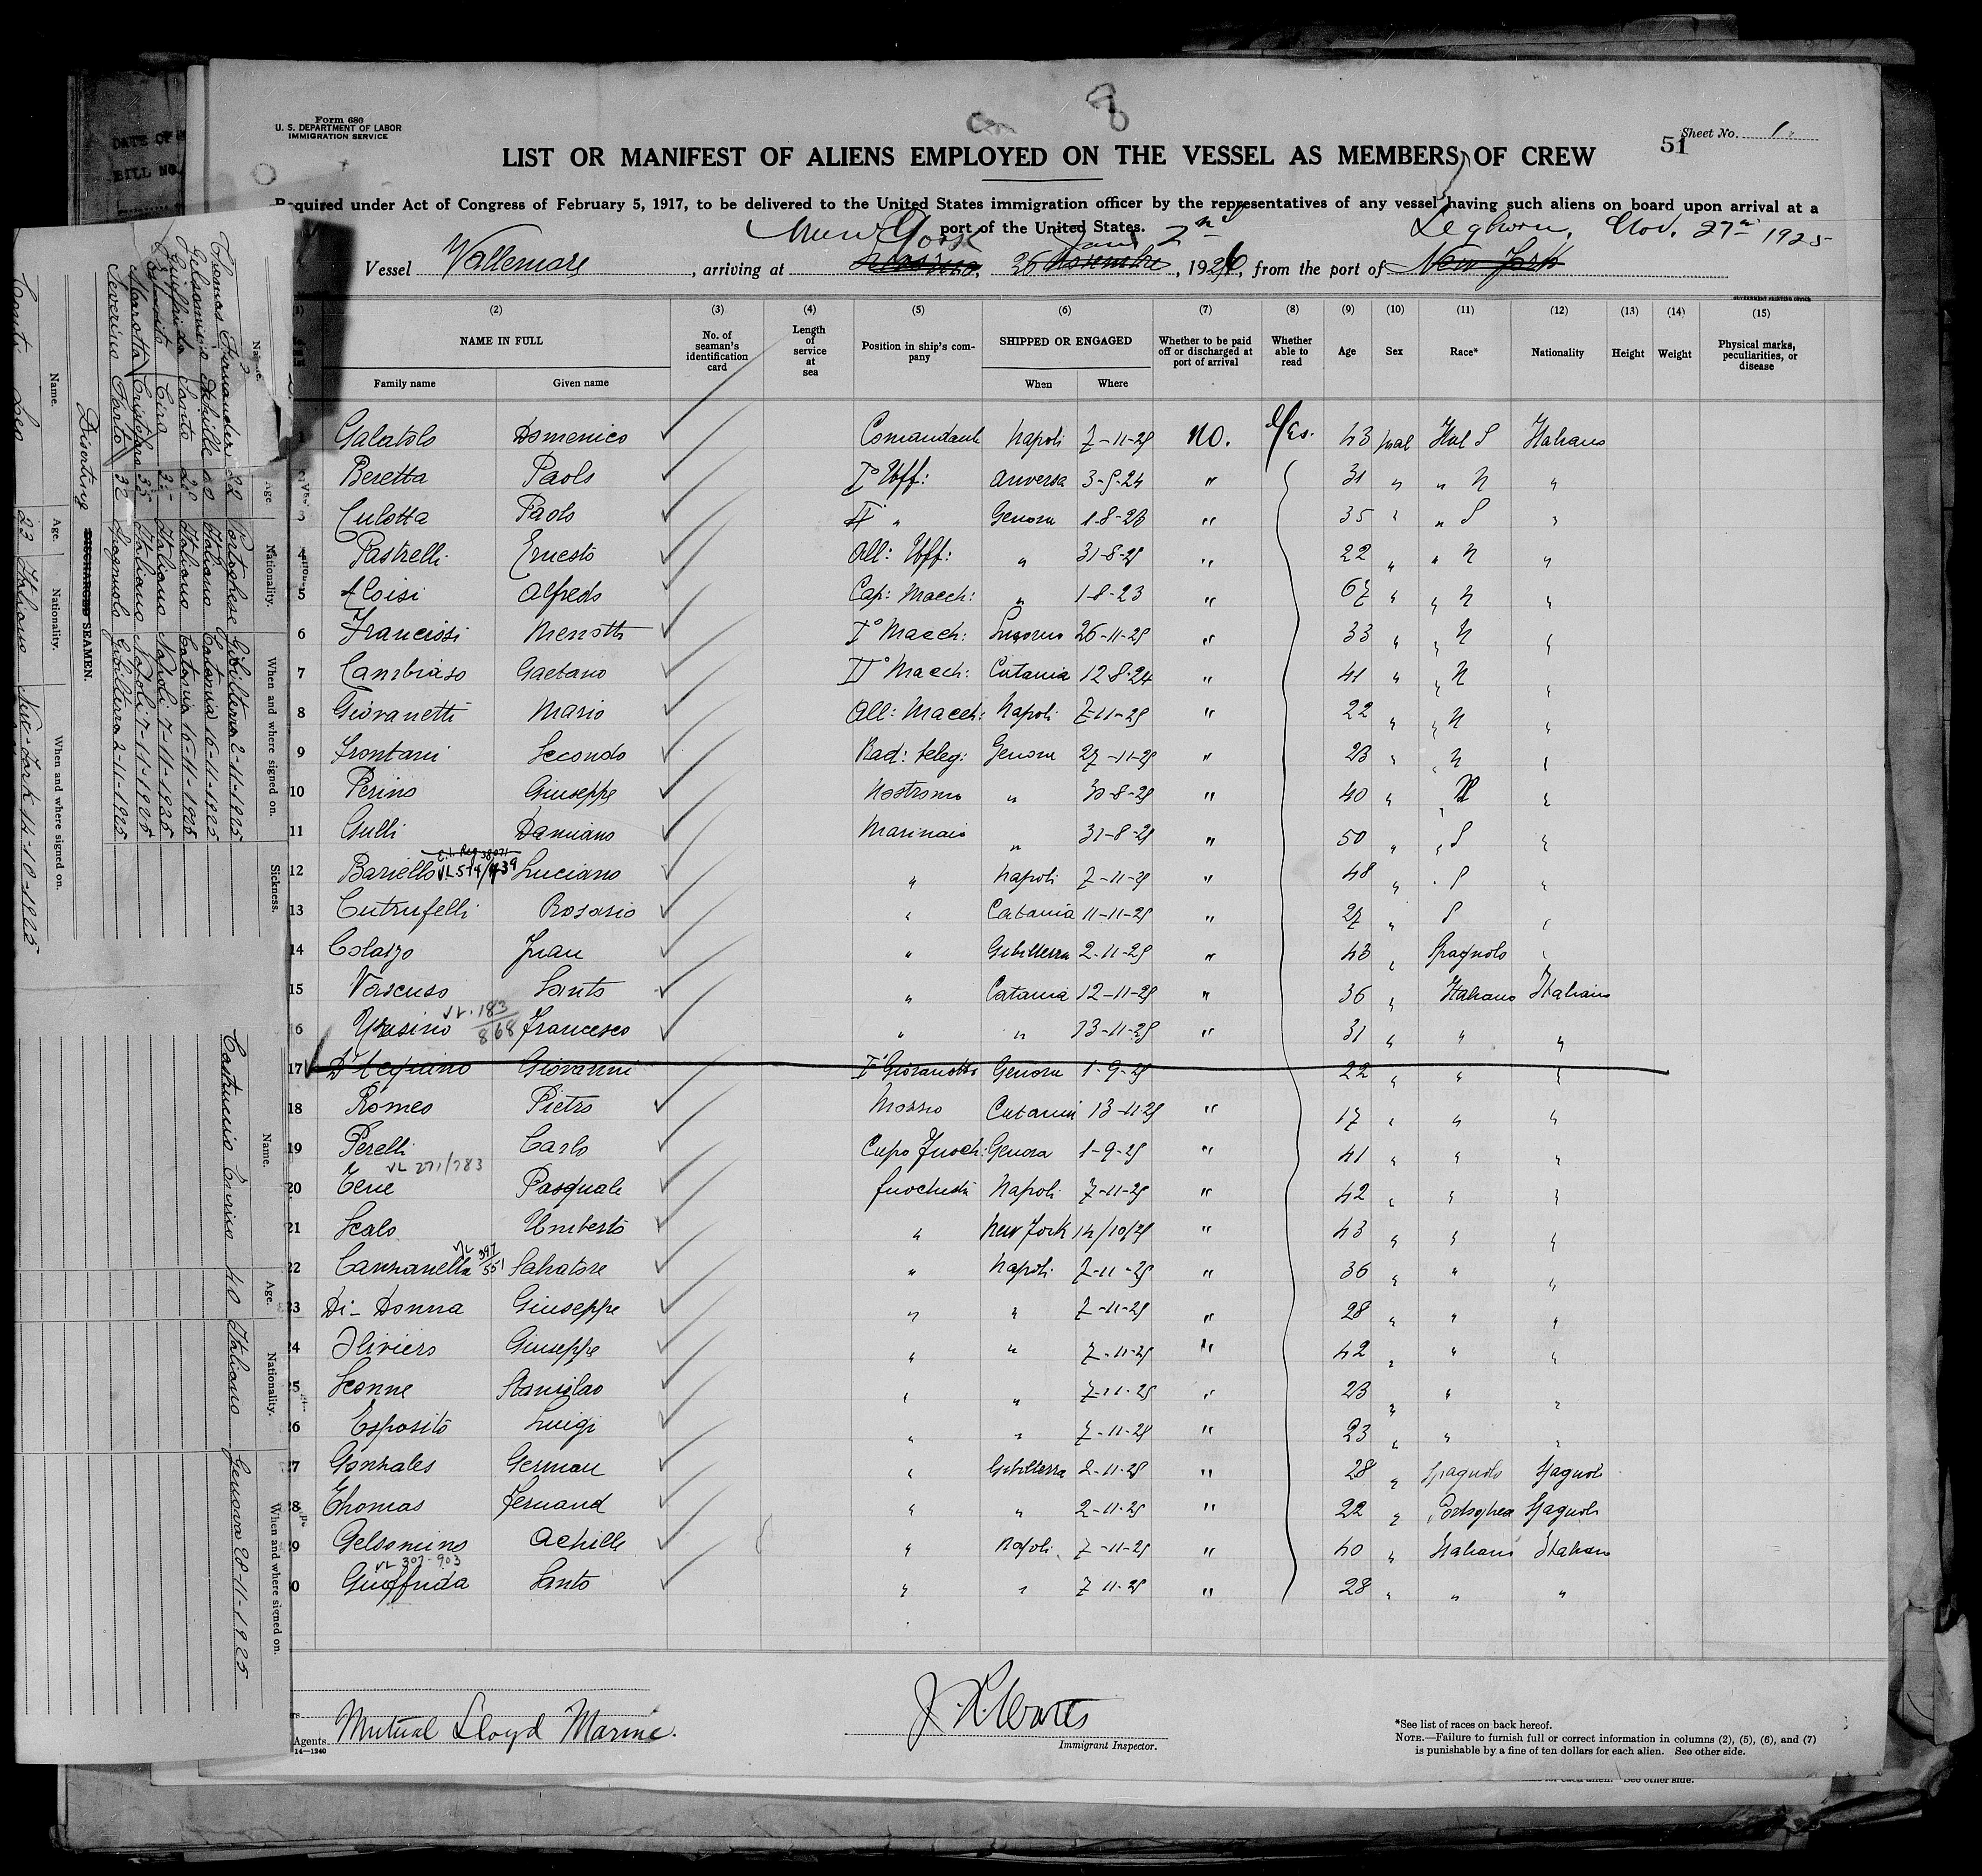 Form 680
U. S. DEPARTMENT OF LABOR
IMMIGRATION SERVICE
8
Sheet No. 1
51
LIST OR MANIFEST OF ALIENS EMPLOYED ON THE VESSEL AS MEMBERS OF CREW
Required under Act of Congress of February 5, 1917, to be delivered to the United States immigration officer by the representatives of any vessel having such aliens on board upon arrival at a
port of the United States.
New York Jany 2nd Leghorn, Nov. 27th 1925
Vessel Vallemare, arriving at 26 Novembre, 1926, from the port of New York
GOVERNMENT PRINTING OFFICE
(1) (2) (3) (4) (5) (6) (7) (8) (9) (10) (11) (12) (13) (14) (15)
NAME IN FULL No. of seaman's identification card Length of service at sea Position in ship's company SHIPPED OR ENGAGED Whether to be paid off or discharged at port of arrival Whether able to read Age Sex Race* Nationality Height Weight Physical marks, peculiarities, or disease
Family name Given name When Where
1 Galatolo Domenico Comandante Napoli 7-11-25 no. Yes. 43 mal Ital S Italiano
2 Beretta Paolo I° Uff: Anversa 3-5-24 " 31 " " N "
3 Culotta Paolo II " Genova 1-8-23 " 35 " " S "
4 Pastrelli Ernesto All: Uff: " 31-8-25 " 22 " " N "
5 Aloisi Alfredo Cap: Macch: " 1-8-23 " 67 " " N "
6 Francissi Menotti I° Macch: Livorno 26-11-25 " 33 " " N "
7 Cambiaso Gaetano II° Macch: Catania 12-8-24 " 41 " " N "
8 Giovanetti Mario All: Macch: Napoli 7-11-25 " 22 " " N "
9 Frontani Secondo Rad: teleg: Genova 27-11-25 " 23 " " N "
10 Perino Giuseppe Nostromo " 30-8-25 " 40 " " N "
11 Gulli Damiano Marinaio " 31-8-25 " 50 " " S "
12 Bariello VL 514/439 Luciano " Napoli 7-11-25 " 48 " " S "
13 Cutrufelli Rosario " Catania 11-11-25 " 27 " S "
14 Colazzo Juan " Gibilterra 2-11-25 " 43 " Spagnolo "
15 Vascuso Santo " Catania 12-11-25 " 36 " Italiano Italiano
VL. 183/868
16 Francesco " " 13-11-25 " 31 " " "
17 Giovanni I° Giovanotto Genova 1-9-25 22 " " "
18 Romeo Pietro Mozzo Catania 13-11-25 " 17 " " "
19 Perelli Carlo Capo Fuoch: Genova 1-9-25 " 41 " " "
VL 271/783
20 Pasquale Fuochista Napoli 7-11-25 " 42 " " "
21 Scalo Umberto " New York 14/10/25 " 43 " " "
22 Canzanella VL 397/551 Salvatore " Napoli 7-11-25 " 36 " " "
23 Di-Donna Giuseppe " " 7-11-25 " 28 " " "
24 Oliviero Giuseppe " " 7-11-25 " 42 " " "
25 Stanislao " " 7-11-25 " 23 " " "
26 Esposito Luigi " " 7-11-25 " 23 " " "
27 Gonzales German " Gibilterra 2-11-25 " 28 " Spagnolo Spagnolo
28 Thomas Fernand " " 2-11-25 " 22 " Portoghese Spagnolo
29 Gelsomino Achille " Napoli 7-11-25 " 40 " Italiano Italiano
VL 307-903
30 Giuffrida Santo " " 7-11-25 " 28 " " "
Agents Mutual Lloyd Marine.
14—1240
Immigrant Inspector.
*See list of races on back hereof.
NOTE.—Failure to furnish full or correct information in columns (2), (5), (6), and (7)
is punishable by a fine of ten dollars for each alien. See other side.
DATE OF
BILL NO.
Name. Age. Nationality. When and where signed on. Sickness.
Thomas Fernandez 22 Portoghese Gibilterra 2-11-1925
Gelsomino Achille 40 Italiano Catania 16-11-1925
Giuffrida Santo 28 Italiano Catania 16-11-1925
Ciro Italiano Napoli 7-11-1925
Marotta Cristofaro 35 Italiano Napoli 7-11-1925
Severino 32 Spagnuolo Gibilterra 2-11-1925
Deserting DISCHARGED SEAMEN.
Name. Age. Nationality. When and where signed on.
Conti Leo 23 Italiano New-York 14-10-1925
Name. Age. Nationality. When and where signed on.
Castruccio Enrico 40 Italiano Genova 28-11-1925